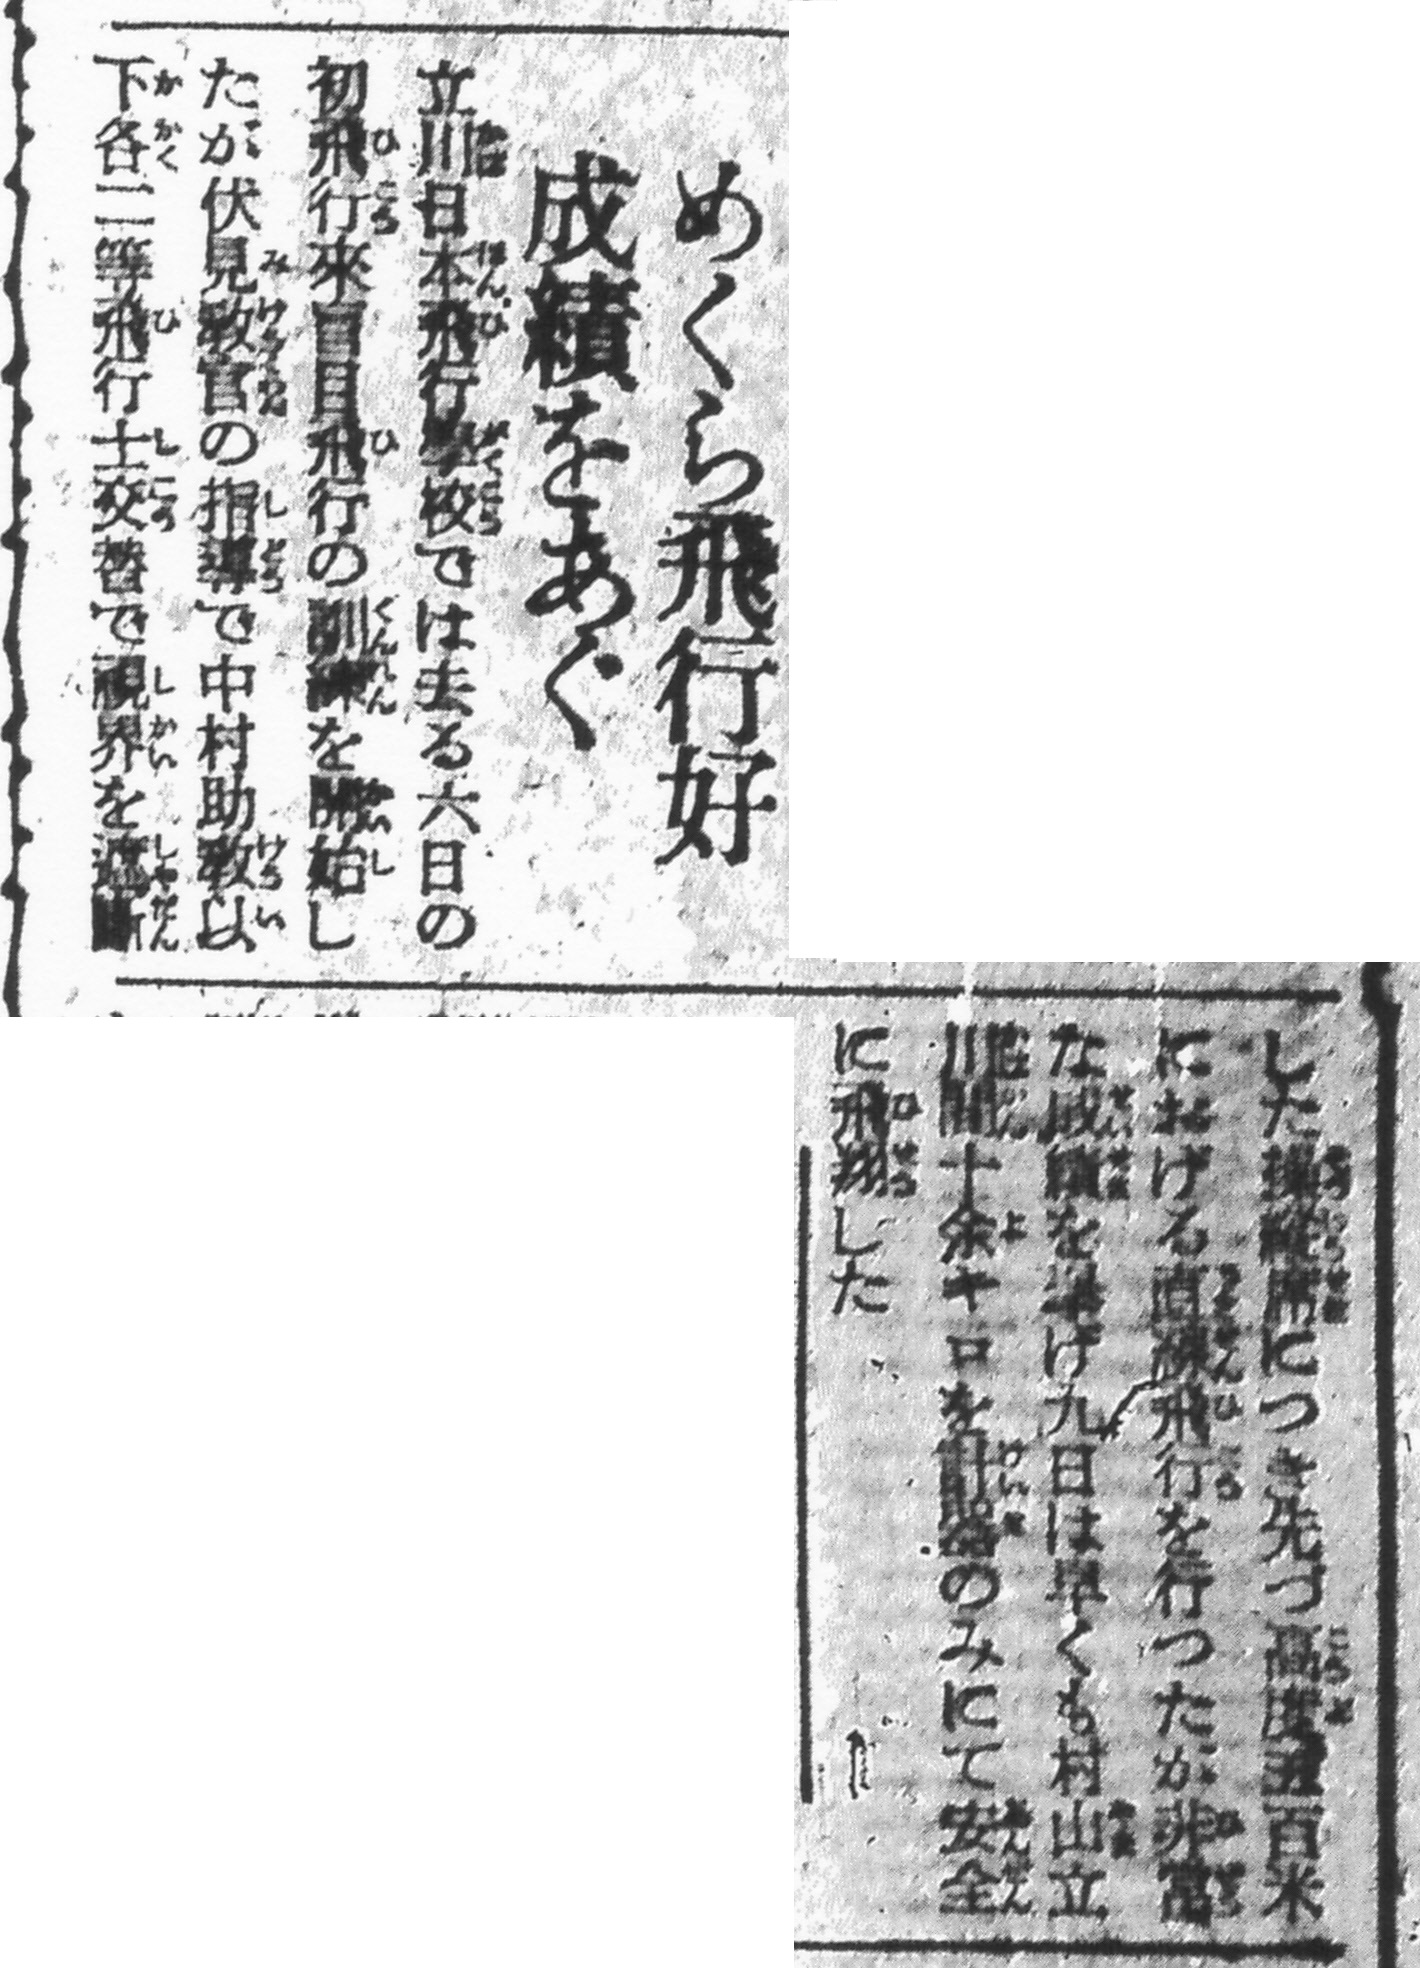 めくら飛行好
成績をあぐ
立川日本飛行學校では去る六日の
初飛行來盲目飛行の訓練を開始し
たが伏見教官の指導で中村助教以
下各二等飛行士交替で視界を遮斷
した操縱席につき先づ高度五百米
における直線飛行を行つたが非常
な成績を挙げ九日は早くも村山立
川間十余キロを計器のみにて安全
に飛翔した